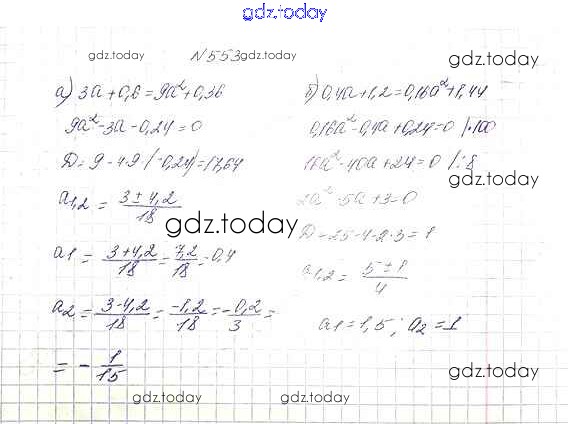 gdz.today
gdz.today N553 gdz.today gdz.today
а) 3a+0,6=9a²+0,36
9a²-3a-0,24=0
D=9-4·9·(-0,24)=17,64
a1,2 = (3±4,2)/18
a1 = (3+4,2)/18 = 7,2/18 = 0,4
a2 = (3-4,2)/18 = -1,2/18 = -0,2/3 =
= -1/15
б) 0,4a+1,2=0,16a²+1,44
0,16a²-0,4a+0,24=0 |·100
16a²-40a+24=0 |:8
2a²-5a+3=0
D=25-4·2·3=1
a1,2 = (5±1)/4
a1=1,5; a2=1
gdz.today
gdz.today
gdz.today
gdz.today gdz.today